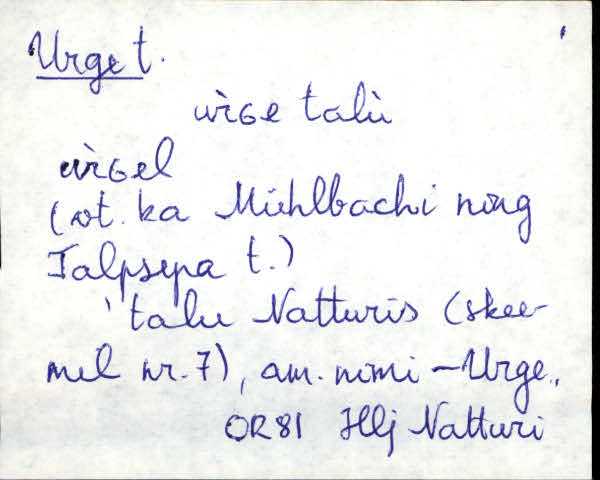 Urge t.
urGe talù
urGel
(vt. ka Mühlbachi ning
Talpsepa t.)
'talu Natturis (skee-
mel nr. 7), am. nimi – Urge.
OR81 Hlj Natturi